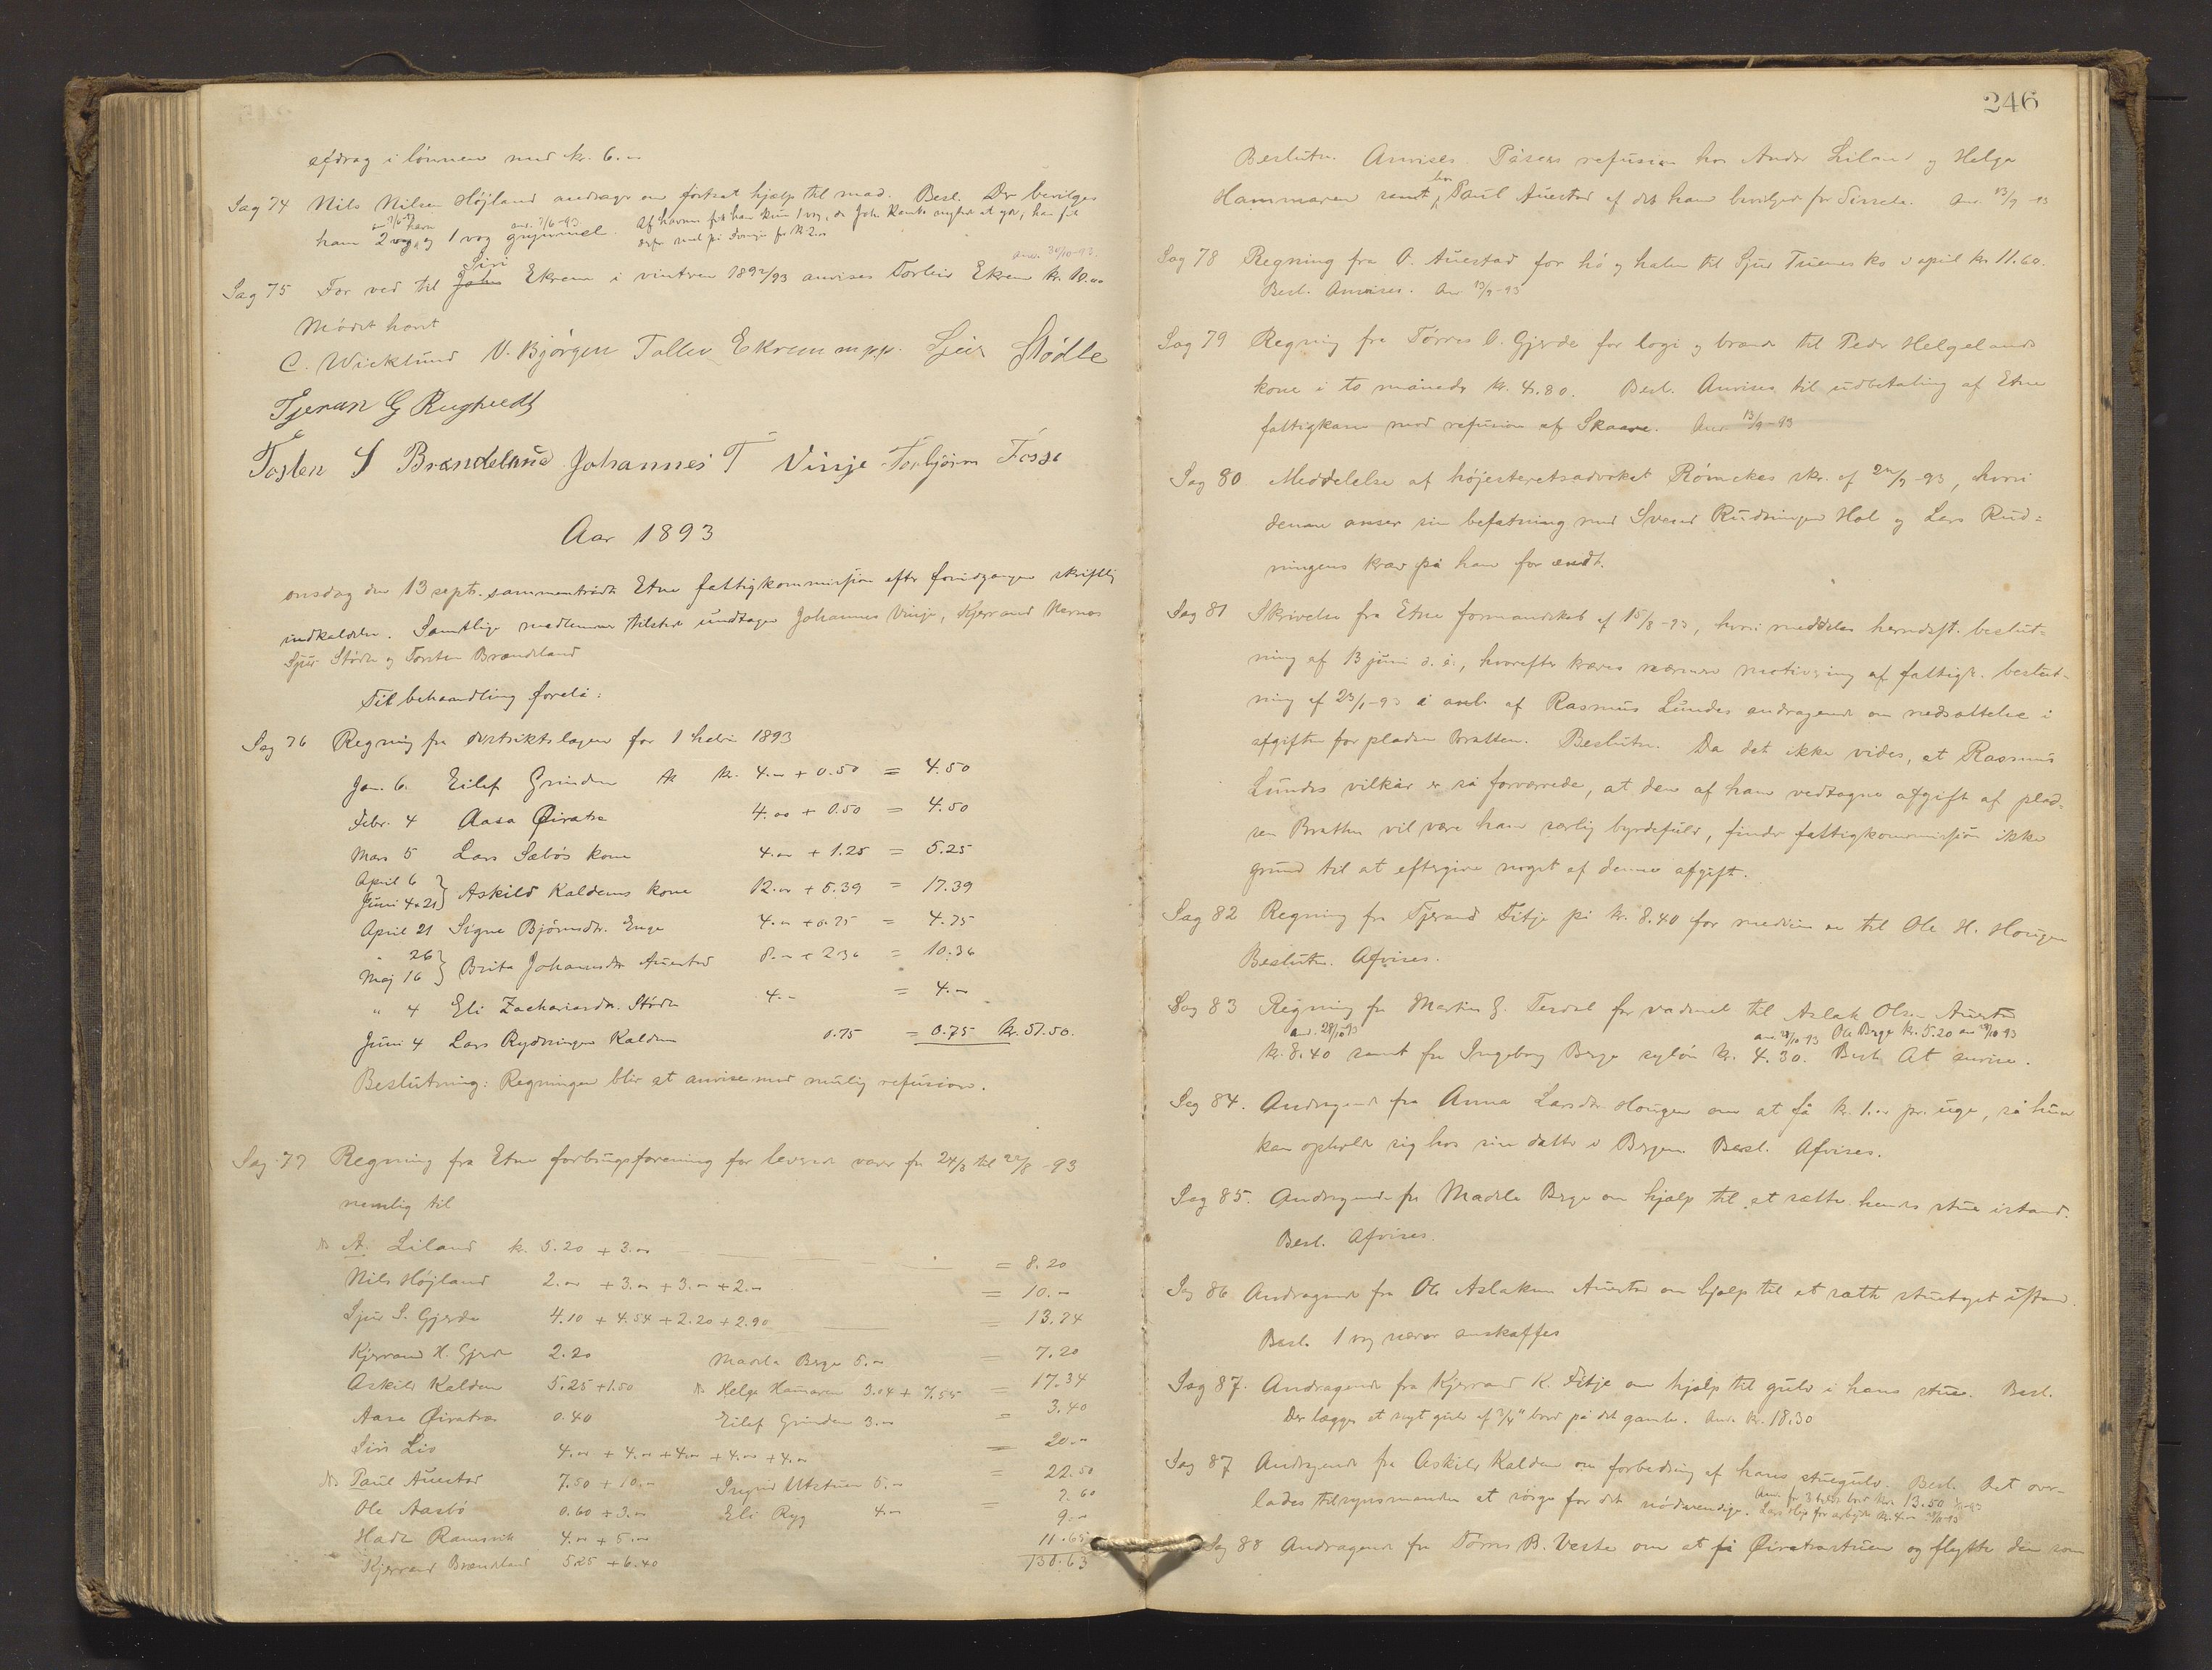 afdrag i lönnen med kr. 6.00
Sag 74 Nils Nilsen Höjland andrager om fortsat hjælp til mad. Besl. Der bevilges
ham 2 vog havre og 1 vog grynmel. anv. 7/6-93 Af havren fik han kun 1 vog, da Joh. negted at gi, han fik
derfor for kr. 2.00
anv. 30/10-93.
Sag 75 For ved til Siri Ekrem i vintren 1892/93 anvises Torleiv Ekrem kr. 10.00
Mödet hævt
C. Wicklund N. Björgen Tollev Ekrem mpp. Sjur Stödle
Tjeran G Rygtvedt
Tosten S Brændeland Johannes T Vinje Torbjörn Fosse
Aar 1893
onsdag den 13 sept. sammentrådte Etne fattigkommission efter foregangen skriftlig
indkaldelse. Samtlige medlemmer tilstede undtagen Johannes Vinje, Kjerrand Nernes
Sjur Stödle og Torsten Brændeland
Til behandling forelå:
Sag 76 Regning fra distriktslægen for 1 halvår 1893
Jan. 6. Eilef Grinden kr. 4.00 + 0.50 = 4.50
Febr. 4 Aasa Øiratræ 4.00 + 0.50 = 4.50
Mars 5 Lars Sæbös kone 4.00 + 1.25 = 5.25
April 6
Juni 4 & 21 } Askild Kaldems kone 12.00 + 5.39 = 17.39
April 21 Signe Björnsdtr. Enge 4.00 + 0.75 = 4.75
" 26
Maj 16 } Brita Johannsdtr Auestad 8.00 + 2.36 = 10.36
" 4 Eli Zachariasdtr. Stödle 4.00 = 4.00
Juni 4 Lars Rydningen Kaldem 0.75 = 0.75 kr. 51.50.
Beslutning: Regningen blir at anvise med mulig refusion.
Sag 77 Regning fra Etne forbrugsforening for leverede varer fra 24/3 til 22/8 -93
nemlig til
A. Liland kr. 5.20 + 3.00 = 8.20
Nils Höjland 2.00 + 3.00 + 3.00 + 2.00 = 10.00
Sjur S. Gjerde 4.10 + 4.54 + 2.20 + 2.90 = 13.74
Kjerrand H. Gjerde 2.20 Madela Berge 5.00 = 7.20
Askild Kaldem 5.25 + 1.50 Helge Hamaren 3.04 + 7.55 = 17.34
Aasa Øiratræ 0.40 Eilef Grinden 3.00 = 3.40
Siri Lio 4.00 + 4.00 + 4.00 + 4.00 + 4.00 = 20.00
Paul Auestad 7.50 + 10.00 Ingrid Utstuen 5.00 = 22.50
Ole Aasbö 0.60 + 3.00 Eli Ryg 4.00 = 7.60
Hadle Ramsvik 4.00 + 5.00 9.00
Kjerrand Brændeland 5.25 + 6.40 11.65
130.63
246
Beslutn. Anvises. Påsees refusion hos Anders Liland og Helge
Hammaren samt hos Paul Auestad af det ham bevilgede for Sissela. Anv. 13/9 -93
Sag 78 Regning fra O. Auestad for hö og halm til Sjur Tuenes ko i april kr. 11.60.
Besl. Anvises. Anv 13/9-93
Sag 79 Regning fra Törres O. Gjerde for logi og brænde til Peder Helgelands
kone i to måneder kr. 4.80. Besl. Anvises til udbetaling af Etne
fattigkasse mod refusion af Skaare. Anv 13/9-93
Sag 80 Meddelelse af höjesteretsadvokat Römckes skr. af 22/7-93, hvori
denne anser sin befatning med Svend Rudningen Hol og Lars Rud=
ningens krav på ham for endt.
Sag 81 Skrivelse fra Etne formandskab af 15/8-93, hvori meddeles herredsst. beslut=
ning af 13 juni d. å., hvorefter kræves nærmere motivering af fattigk. beslut-
ning af 23/1-93 i anl. af Rasmus Lundes andragende om nedsættelse i
afgiften for pladsen Bratten. Beslutn. Da det ikke vides, at Rasmus
Lundes vilkår er så forværrede, at den af ham vedtagne afgift af plad=
sen Bratten vil være ham særlig byrdefuld, finder fattigkommission ikke
grund til at eftergive noget af denne afgift.
Sag 82 Regning fra Tjerand Fitje på kr. 8.40 for medicin til Ole H. Hougen
Beslutn. Afvises.
Sag 83 Regning fra Martin G. Tesdal for vadmel til Aslak Olsen Auestad
anv. 28/10-93 anv. 28/10-93 Ole Berge kr. 5.20 anv 28/10 93
kr. 8.40 samt fra Ingeborg Berge sylön kr. 4.30. Besl. At anvise.
Sag 84. Andragende fra Anna Larsdtr Hougen om at få kr. 1.00 pr. uge, så hun
kan opholde sig hos sin datter i Bergen. Besl. Afvises.
Sag 85. Andragende fra Madela Berge om hjælp til at sætte hendes stue istand.
Besl. Afvises.
Sag 86 Andragende fra Ole Aslaksen Auestad om hjælp til at sætte stuetaget istand.
Besl. 1 vog næver anskaffes
Sag 87. Andragende fra Kjerrand K. Fitje om hjælp til gulv i hans stue. Besl.
Der lægges et nyt gulv af 3/4" bord på det gamle. Anv. kr. 18.30
Sag 87 Andragende fra Askild Kaldem om forbedring af hans stuegulv. Besl. Det over-
lades tilsynsmanden at sörge for det nödvendige. Anv. for 3 tylvt bord kr. 13.50
Sag 88 Andragende fra Törres B. Veste om at få Øiratræstuen og flytte den som